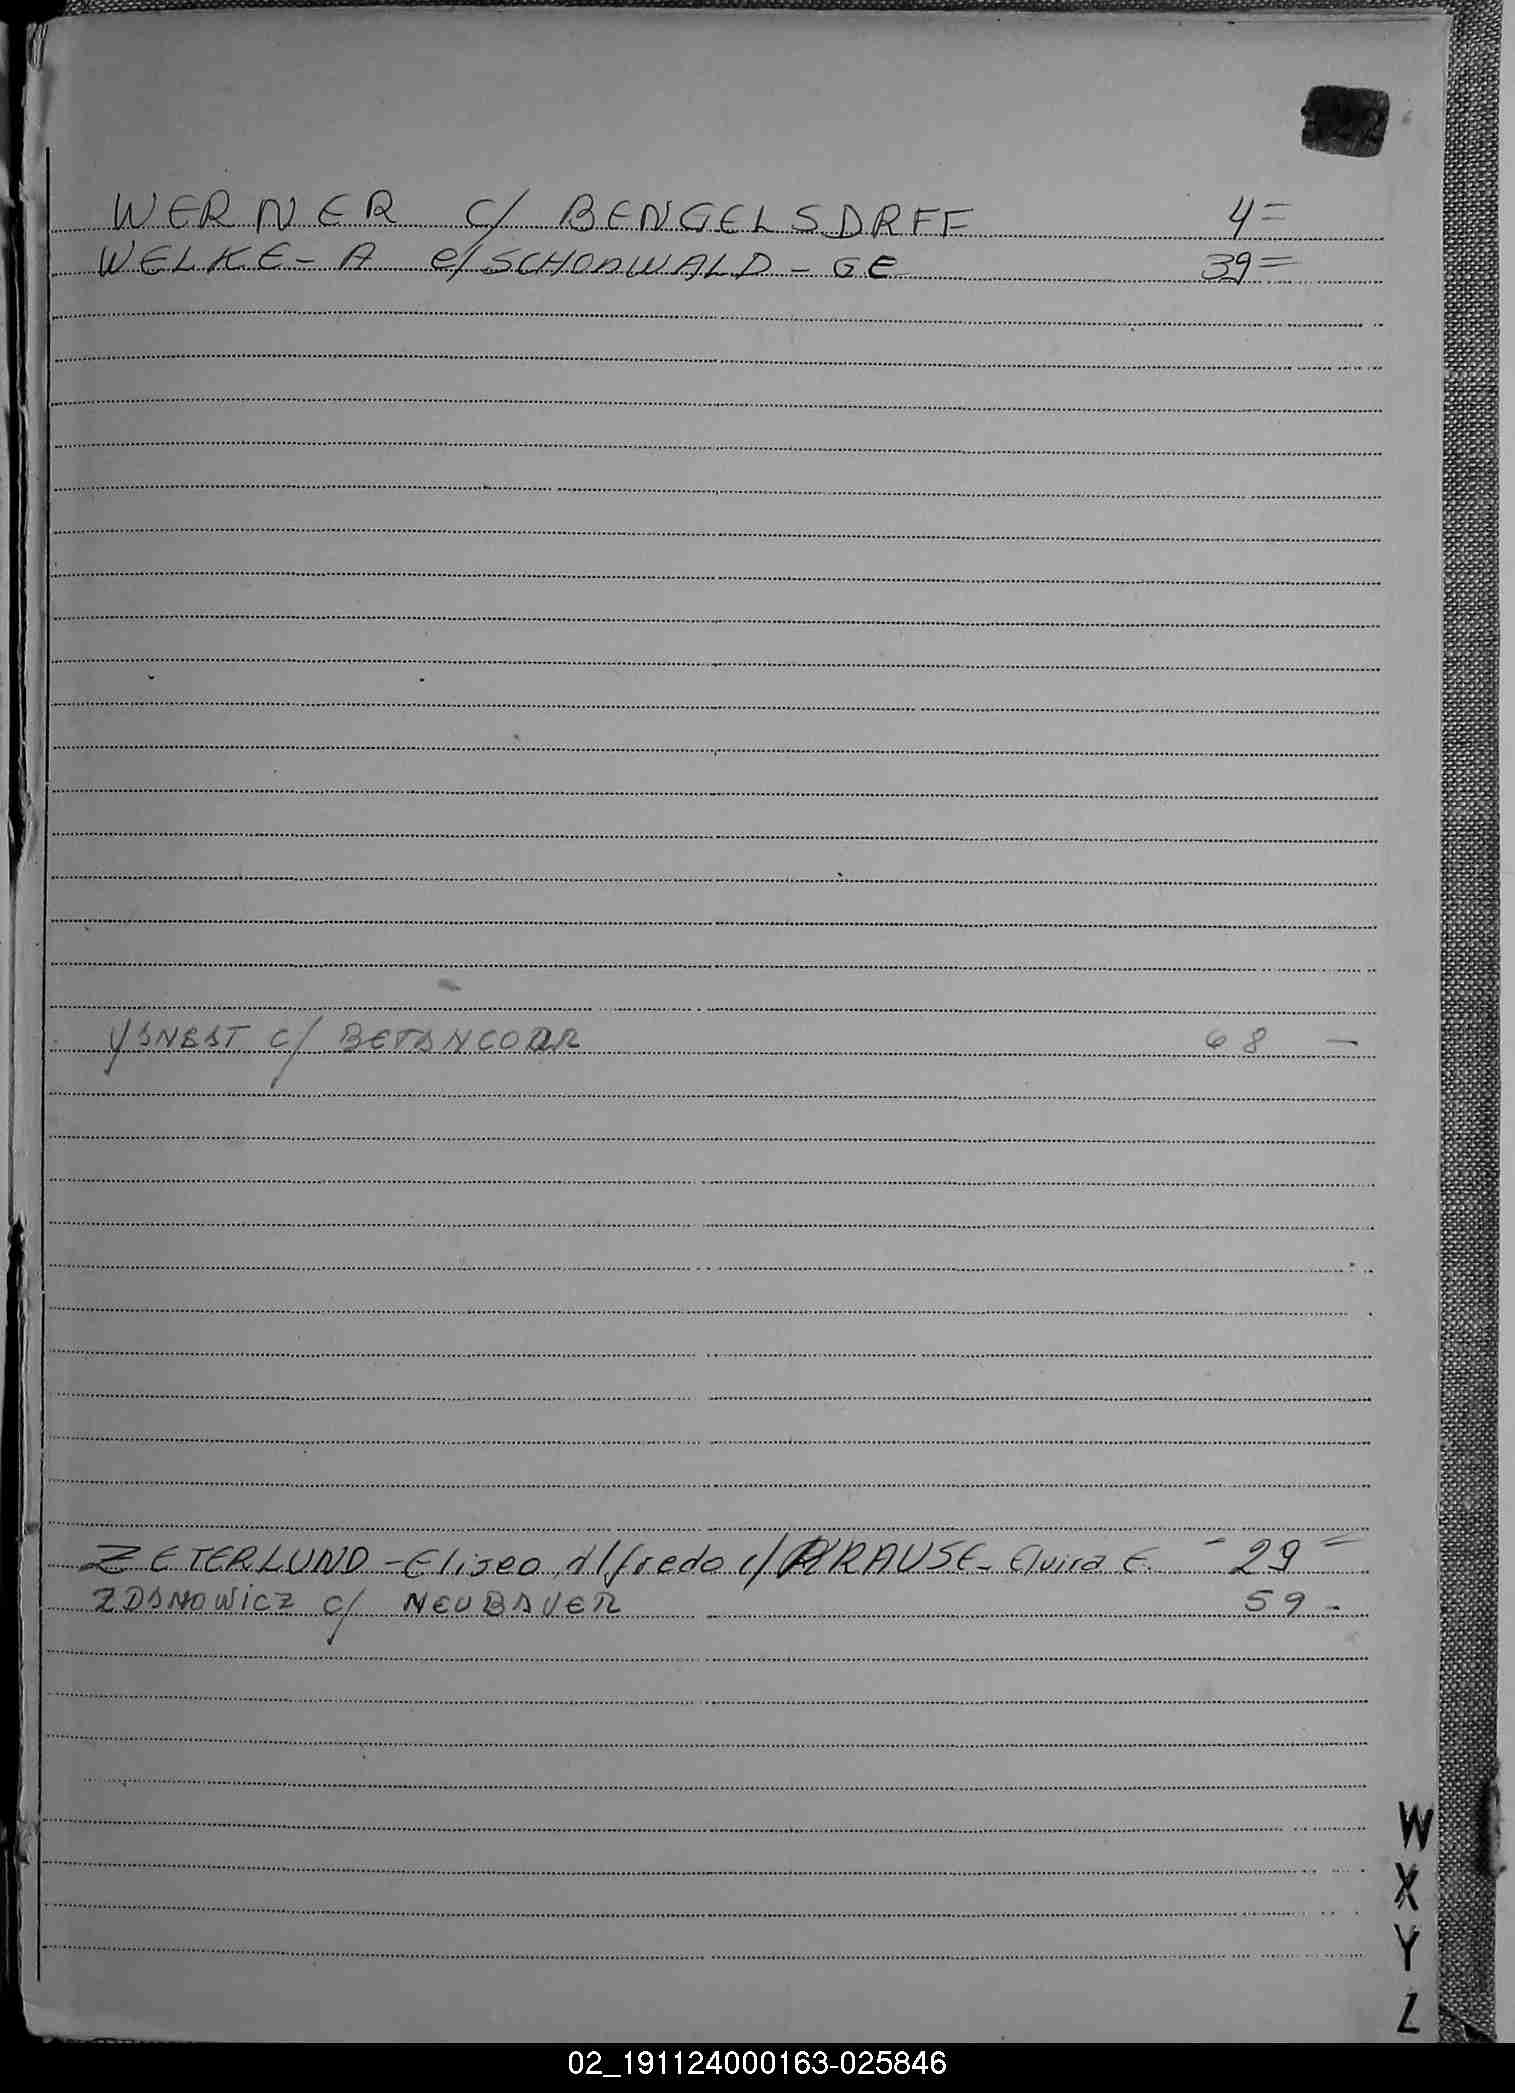 WERNER c/ BENGELSDRFF 4=
WELKE - A c/ SCHONWALD - GE 39=
YANBAT c/ BETANCOUR 68 -
ZETERLUND - Eliseo Alfredo c/ KRAUSE - Elvira E. - 29 =
ZDANOWICZ c/ NEUBAUER 59 -
W
X
Y
Z
02_191124000163-025846